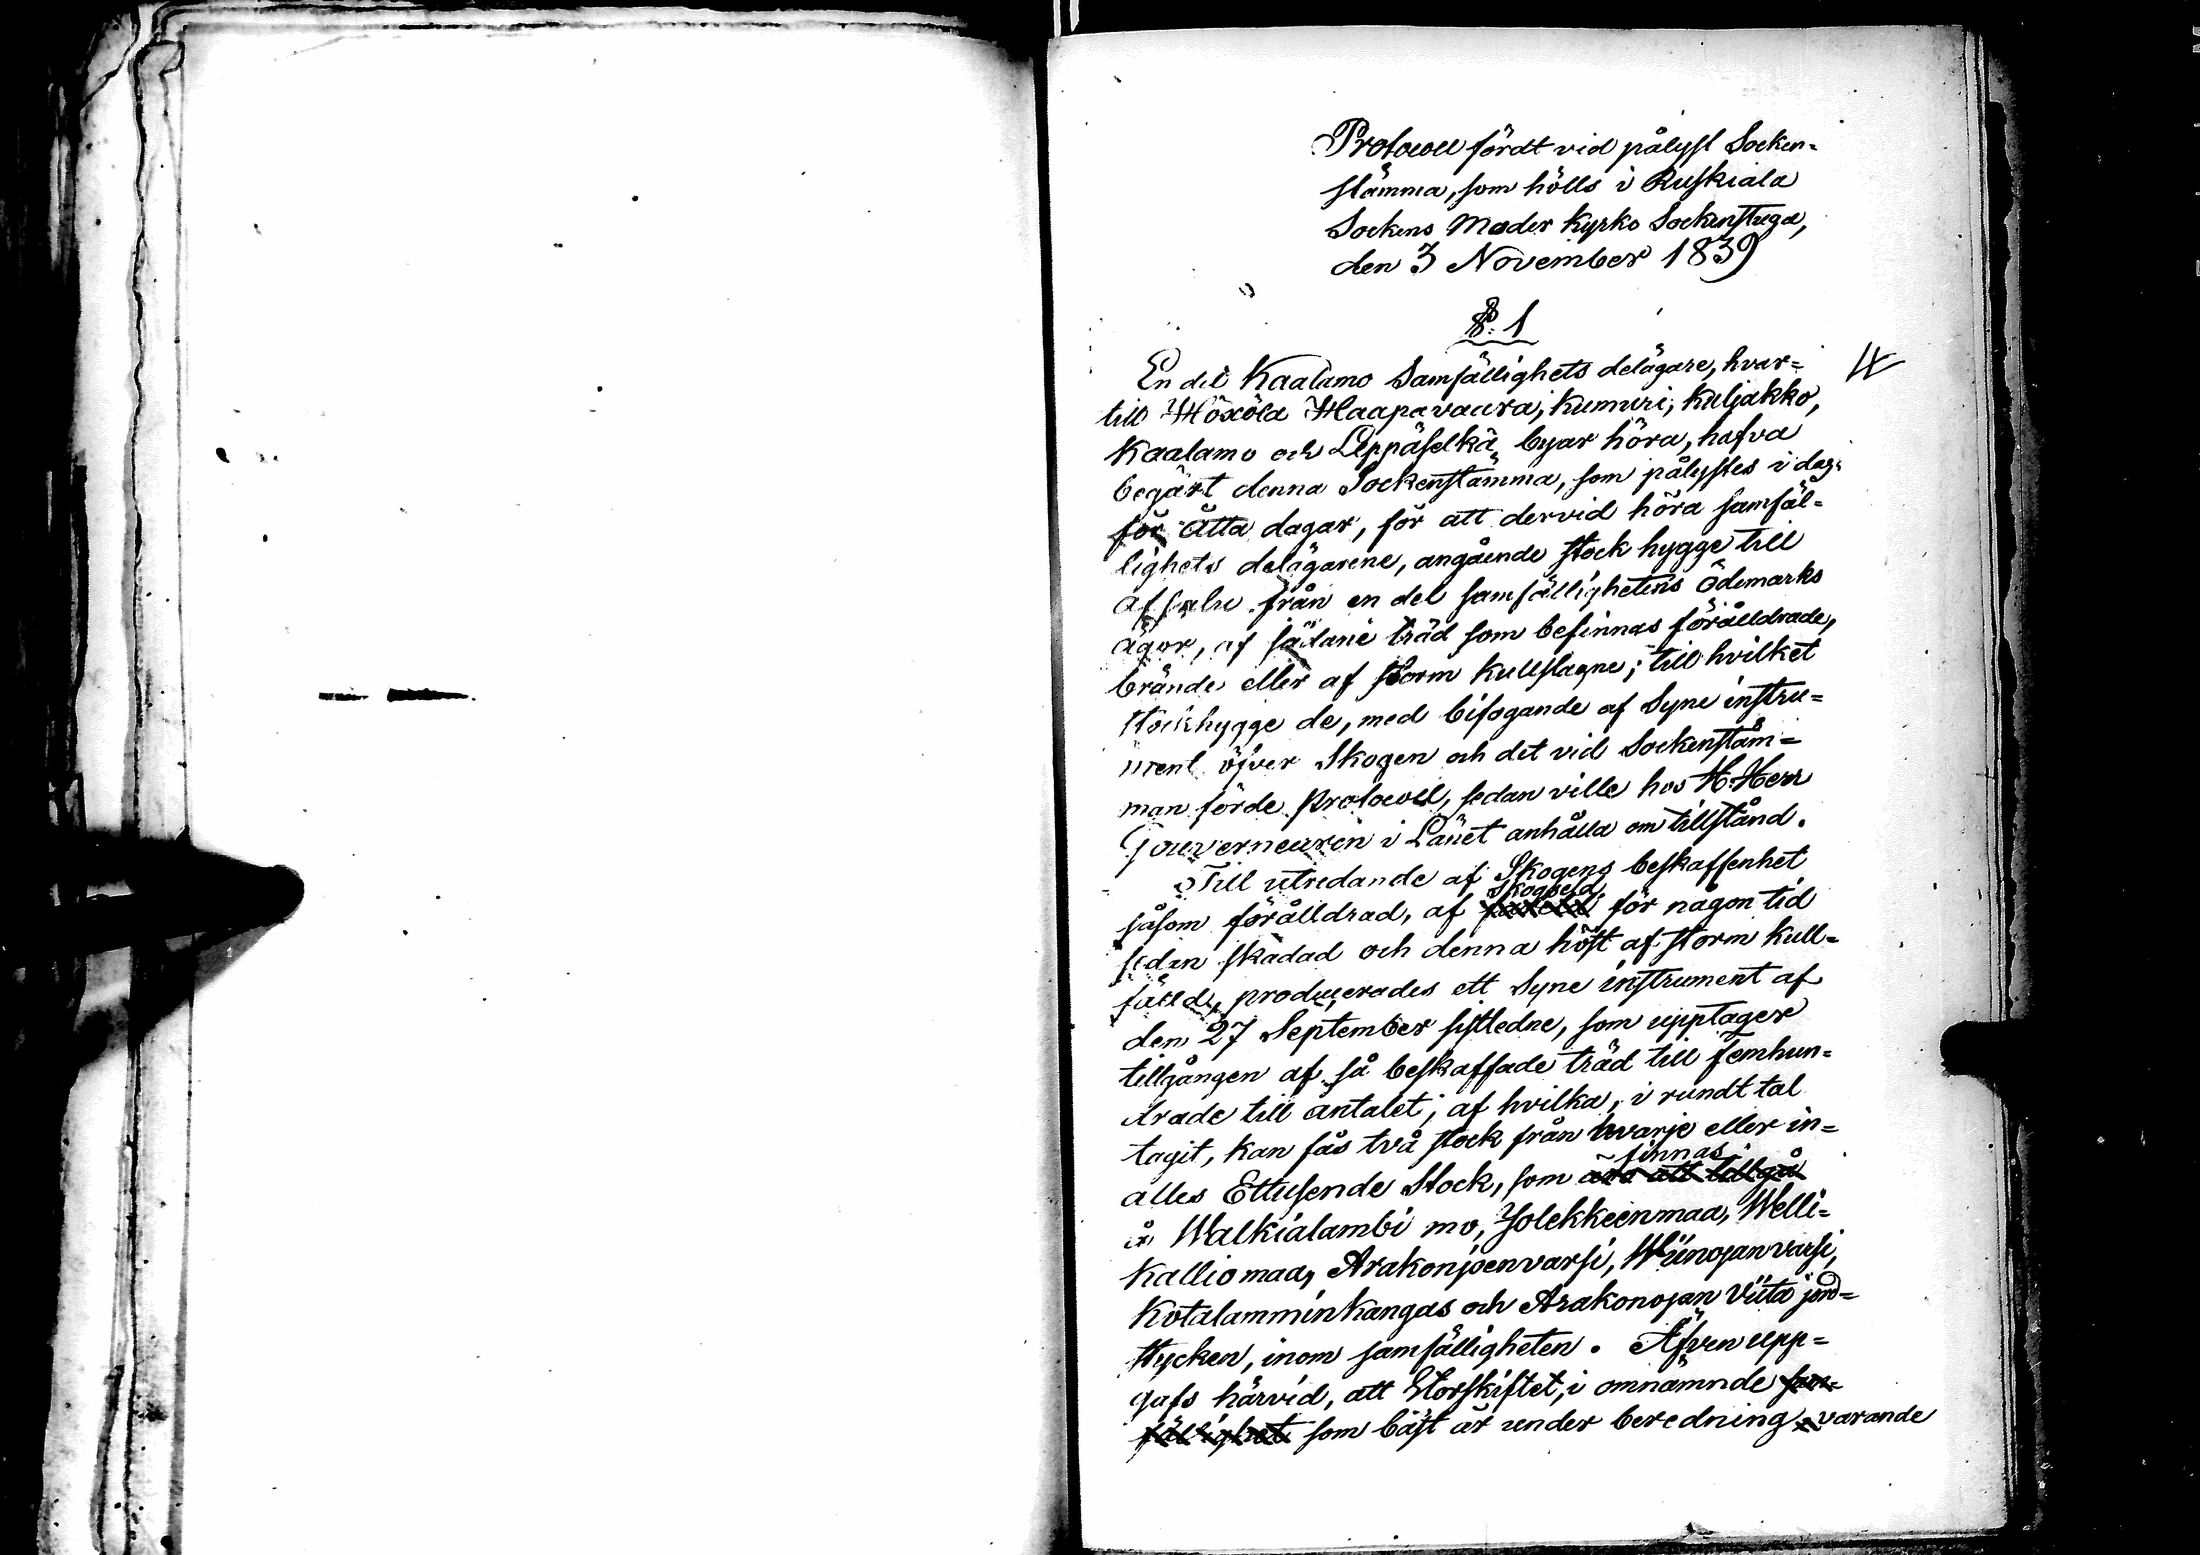 Protocoll fördt vid pålyst Socken-
stämma, som hölls i Ruskiala
Sockens Moder Kyrko Sockenstuga,
den 3 November 1839
§. 1
En del Kaalamo Samfällighets delägare, hvar-
till Höxölä Haapavaara, Kumuri, Kuljakko,
Kaalamo och Leppäselkä byar höra, hafva
begärt denna Sockenstämma, som pålystes i dag
för åtta dagar, för att dervid höra samfäl-
lighets delägarene, angående stock hygge till
afsalu från en del samfällighetens Ödemarks
ägor, af sådane träd som befinnas förålldrade,
brände eller af storm kullslagne; till hvilket
stockhygge de, med bifogande af Syne instru-
ment öfver Skogen och det vid Sockenstäm-
man förde Protocoll, sedan ville hos H. Herr
Gouverneuren i Länet anhålla om tillstånd.
Till utredande af Skogens beskaffenhet
såsom förålldrad, af skogseld för någon tid
sedan skadad och denna höst af storm kull-
fälld, producerades ett Syne instrument af
den 27 September sistledne, som upptager
tillgången af så beskaffade träd till femhun-
drade till antalet; af hvilka, i rundt tal
tagit, kan fås två stock från hvarje eller in-
alles Ettusende Stock, som äro att tillgå finnas
å Walkialambi mo, Jolekkeenmaa, Welli-
kalliomaa, Arakonjoenvarsi, Wiinojanvarsi,
Kotalamminkangas och Arakonojan Viita jord-
stycken, inom samfälligheten. Äfven upp-
gafs härvid, att Storskiftet, i omnämnde sam-
fällighet som bäst är under beredning varande